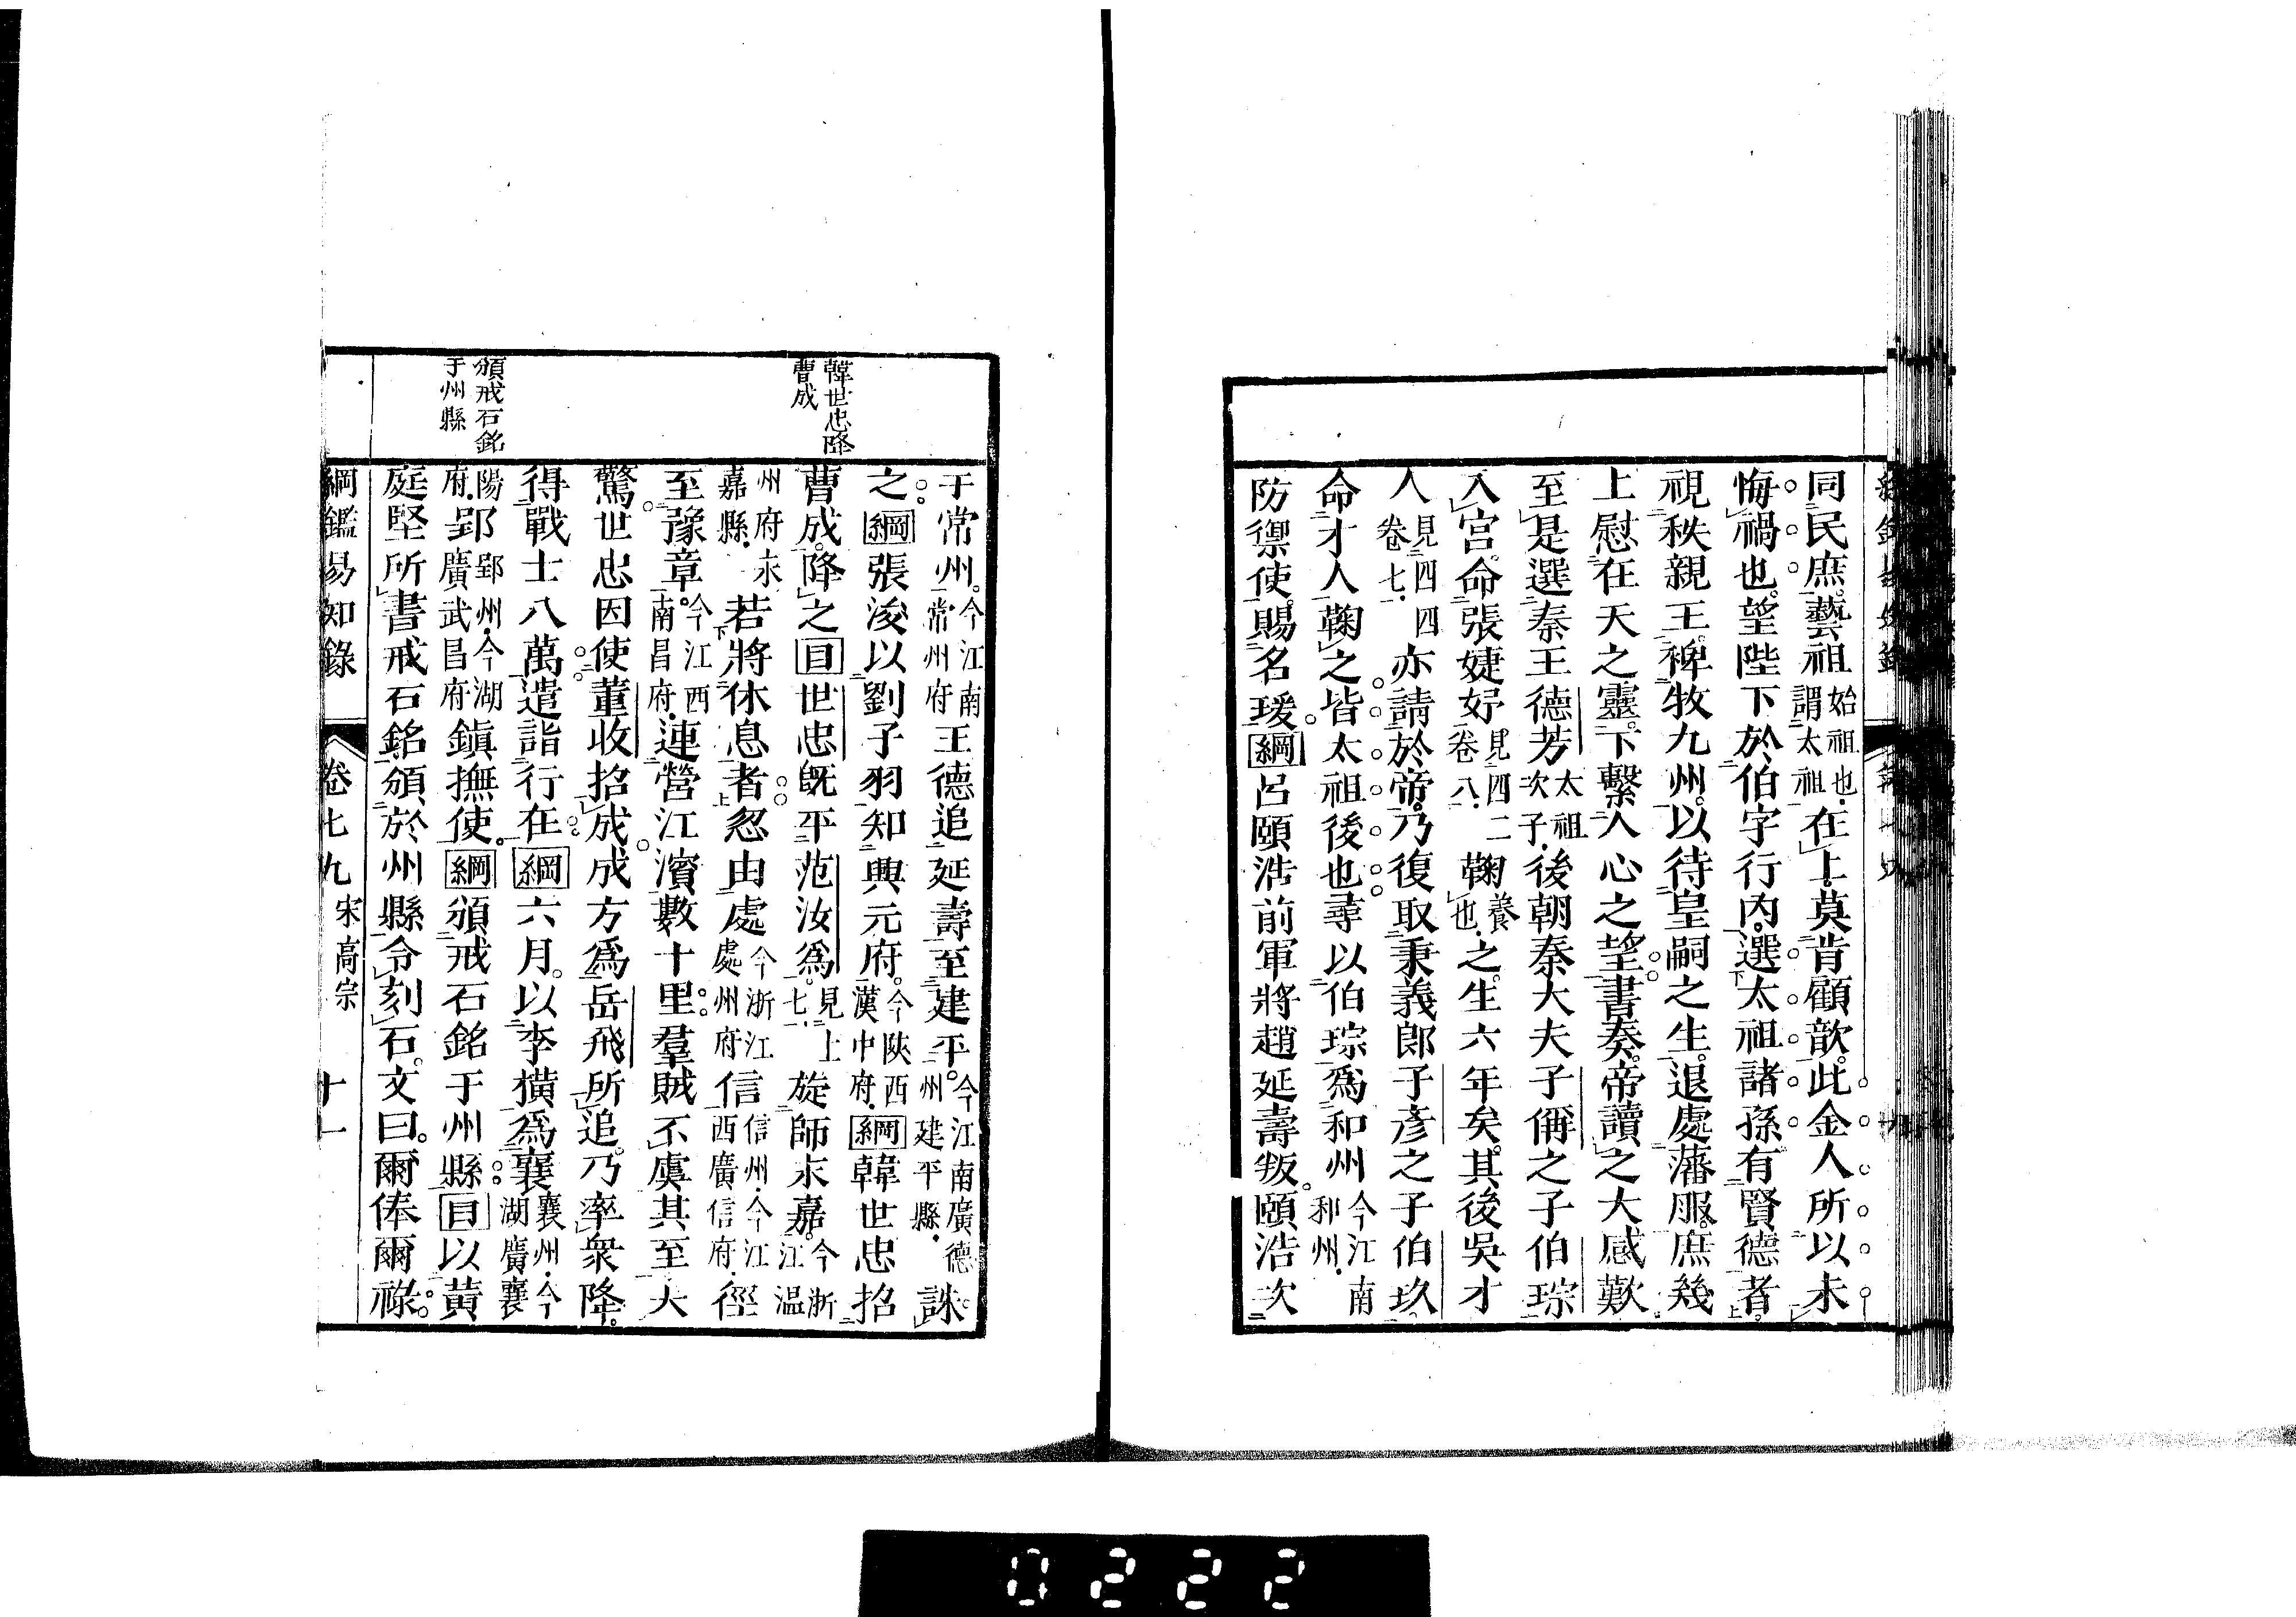 同民庶藝祖始祖也謂太祖在上莫肯顧歆此金人所以未
悔禍也望陛下於伯字行內選太祖諸孫有賢德者
視秩親王稗牧九州以待皇嗣之生退處藩服庶幾
上慰在天之靈下繫人心之望書奏帝讀之大感歎
至是選秦王德芳太祖次子後朝秦大夫子偁之子伯琮
入宮命張婕妤見四二卷八鞠養也之生六年矣其後吳才
人見四四卷七亦請於帝乃復取秉義郎子彥之子伯玖
命才人鞠之皆太祖後也尋以伯琮爲和州今江南和州
防禦使賜名瑗綱呂頤浩前軍將趙延壽叛頤浩次
韓世忠降曹成
頒戒石銘于州縣
于常州今江南常州府王德追延壽至建平今江南廣德州建平縣誅
之綱張浚以劉子羽知興元府今陝西漢中府綱韓世忠招
曹成降之目世忠旣平范汝爲見上七一旋師永嘉今浙江溫
州府永嘉縣若將休息者忽由處今浙江處州府信信州今江西廣信府徑
至豫章今江西南昌府連營江濱數十里羣賊不虞其至大
驚世忠因使董收招成成方爲岳飛所追乃率衆降
得戰士八萬遣詣行在綱六月以李横爲襄襄州今湖廣襄
陽府郢郢州今湖廣武昌府鎭撫使綱頒戒石銘于州縣目以黄
庭堅所書戒石銘頒於州縣令刻石文曰爾俸爾祿
綱鑑易知錄 卷七九 宋高宗 十一
0222